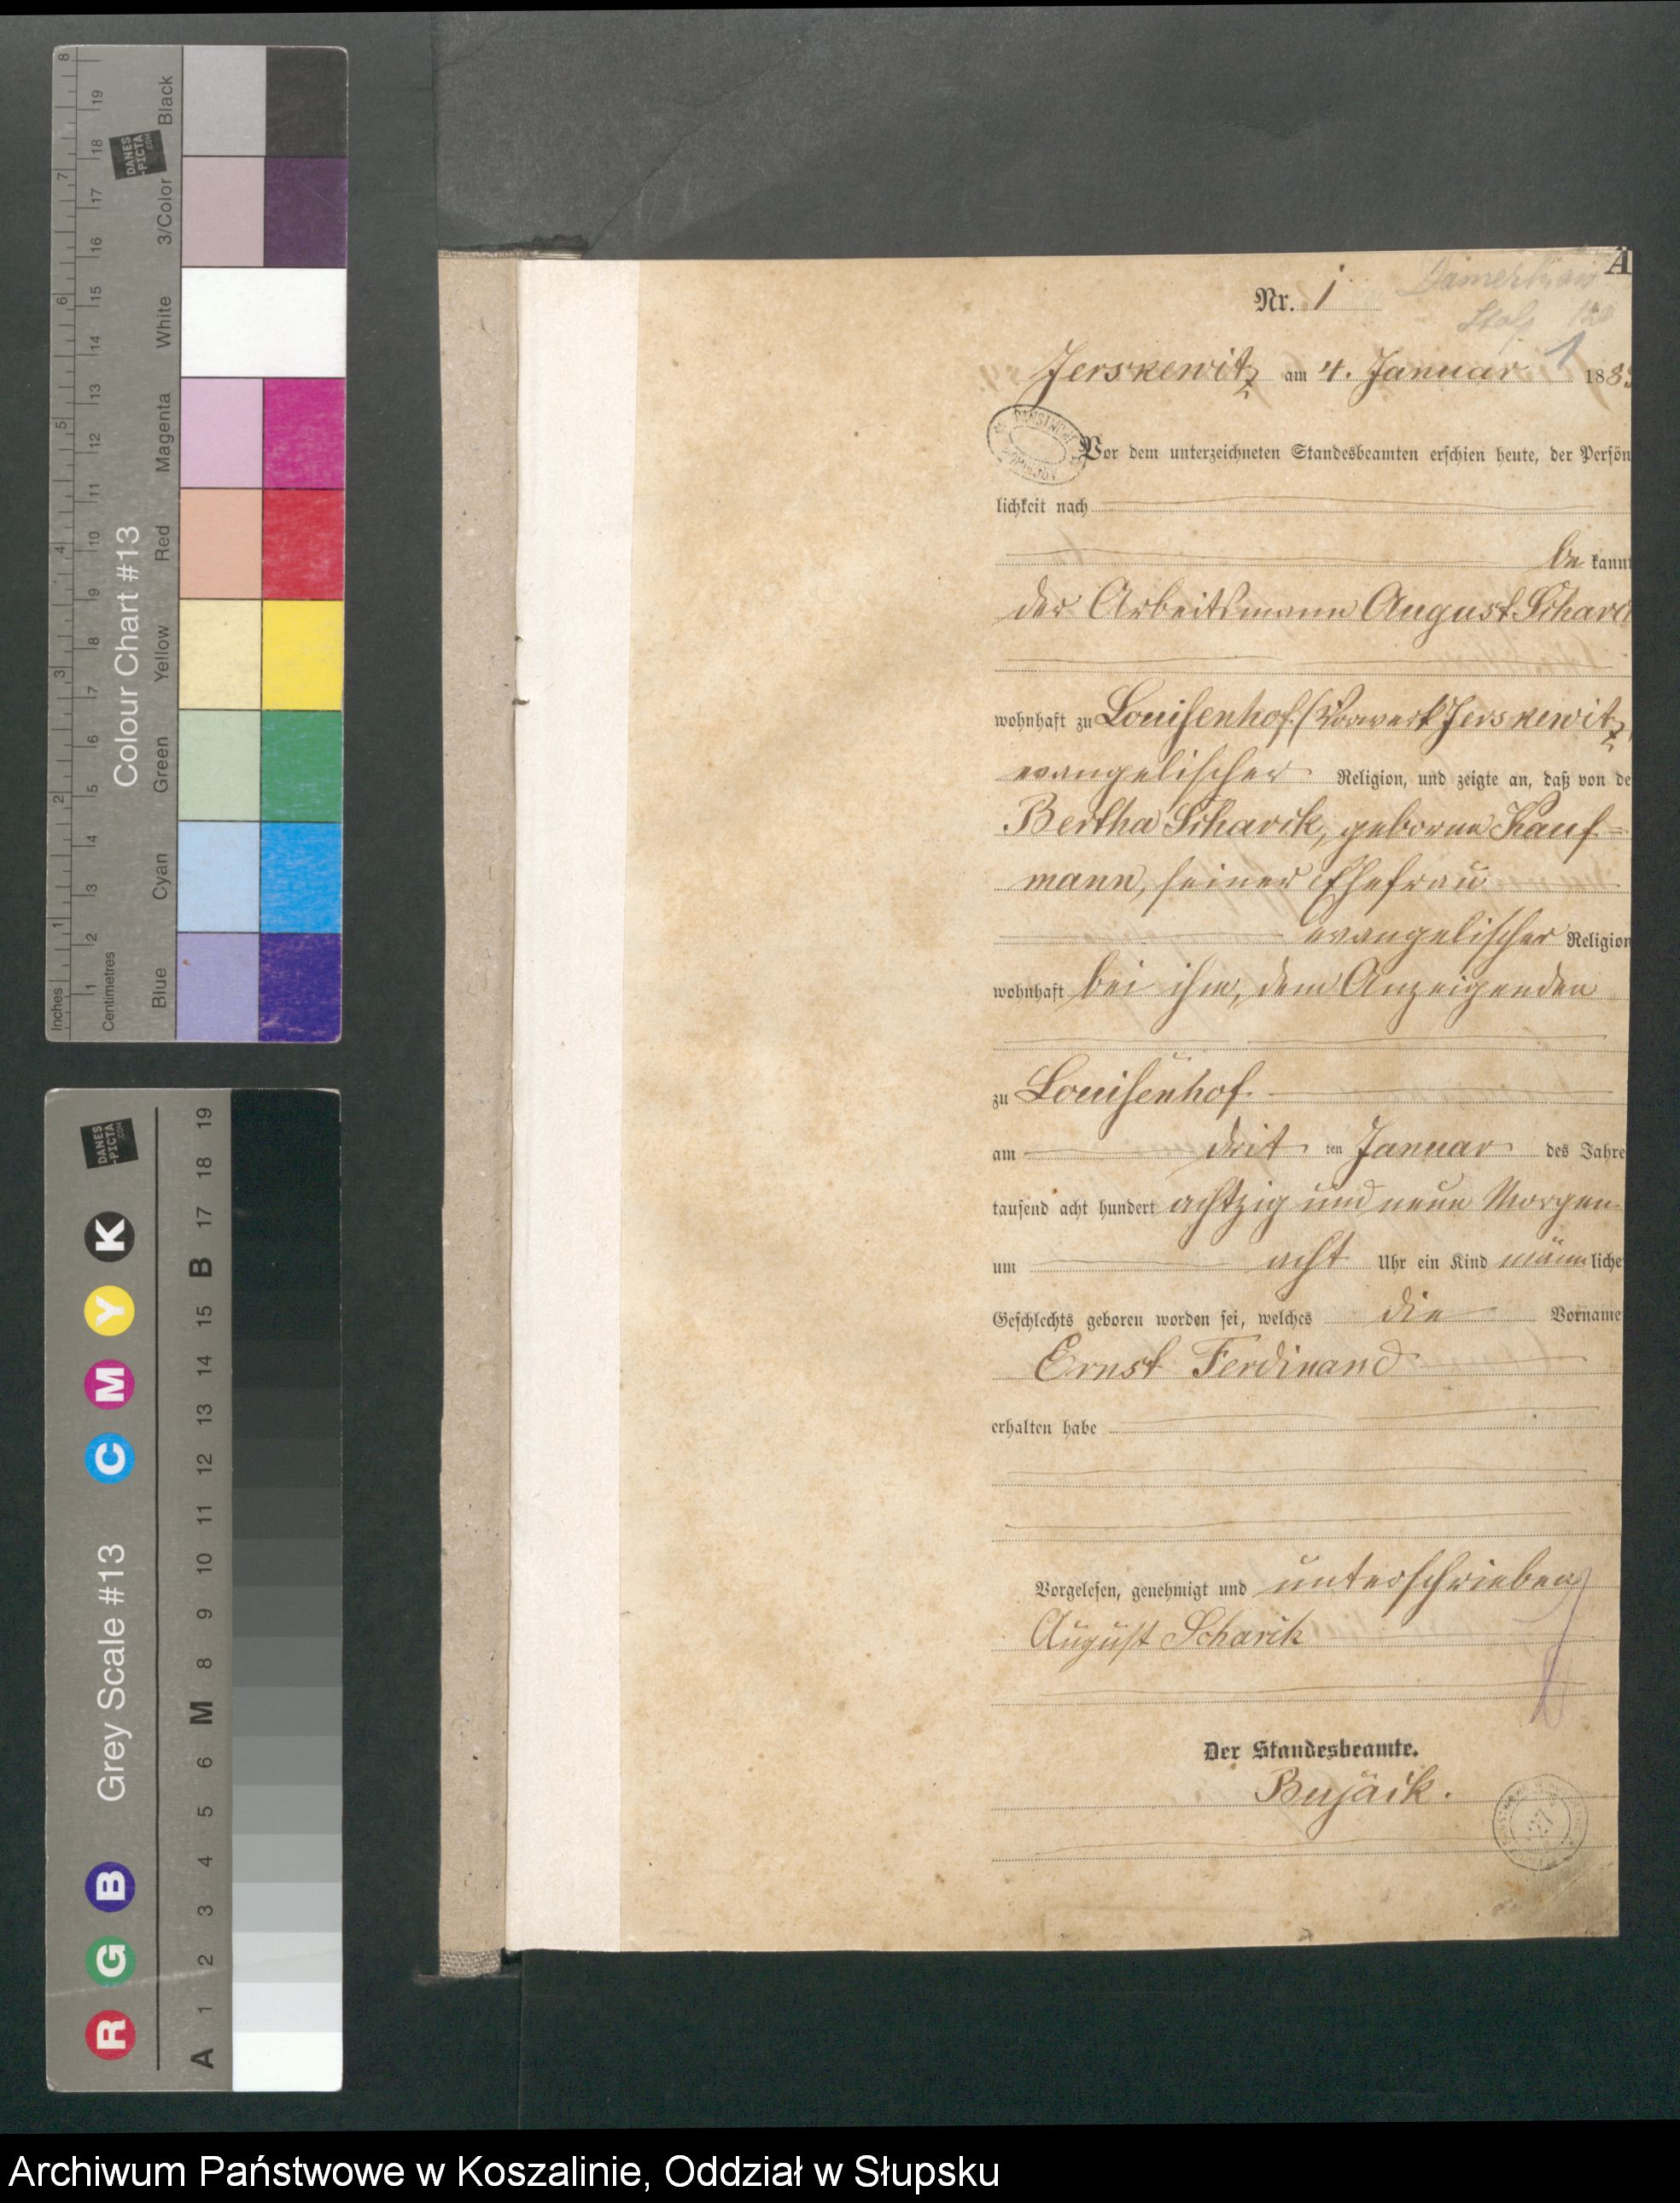 Inches
Centimetres
1 2 3 4 5 6 7 8
1 2 3 4 5 6 7 8 9 10 11 12 13 14 15 16 17 18 19
Colour Chart #13
DANES
-PICTA
.COM
Blue Cyan Green Yellow Red Magenta White 3/Color Black
Grey Scale #13
DANES
-PICTA
.COM
R G B C M Y K
A 1 2 3 4 5 6 M 8 9 10 11 12 13 14 15 B 17 18 19
A
Nr. 1
Stolp
1
Jerskewitz am 4. Januar 188
Vor dem unterzeichneten Standesbeamten erschien heute, der Persön
lichkeit nach
be kannt
der Arbeitsmann August Scharck
wohnhaft zu Louisenhof (Vorwerk Jerskewitz
evangelischer Religion, und zeigte an, daß von de
Bertha Scharik, geborne Kauf=
mann, seiner Ehefrau
evangelischer Religion
wohnhaft bei ihm, dem Anzeigenden
zu Louisenhof
am drit ten Januar des Jahre
tausend acht hundert achtzig und neun Morgen
um acht Uhr ein Kind männ liche
Geschlechts geboren worden sei, welches die Vorname
Ernst Ferdinand
erhalten habe
Vorgelesen, genehmigt und unterschrieben
August Scharik
Der Standesbeamte.
Bujack.
27
Archiwum Państwowe w Koszalinie, Oddział w Słupsku